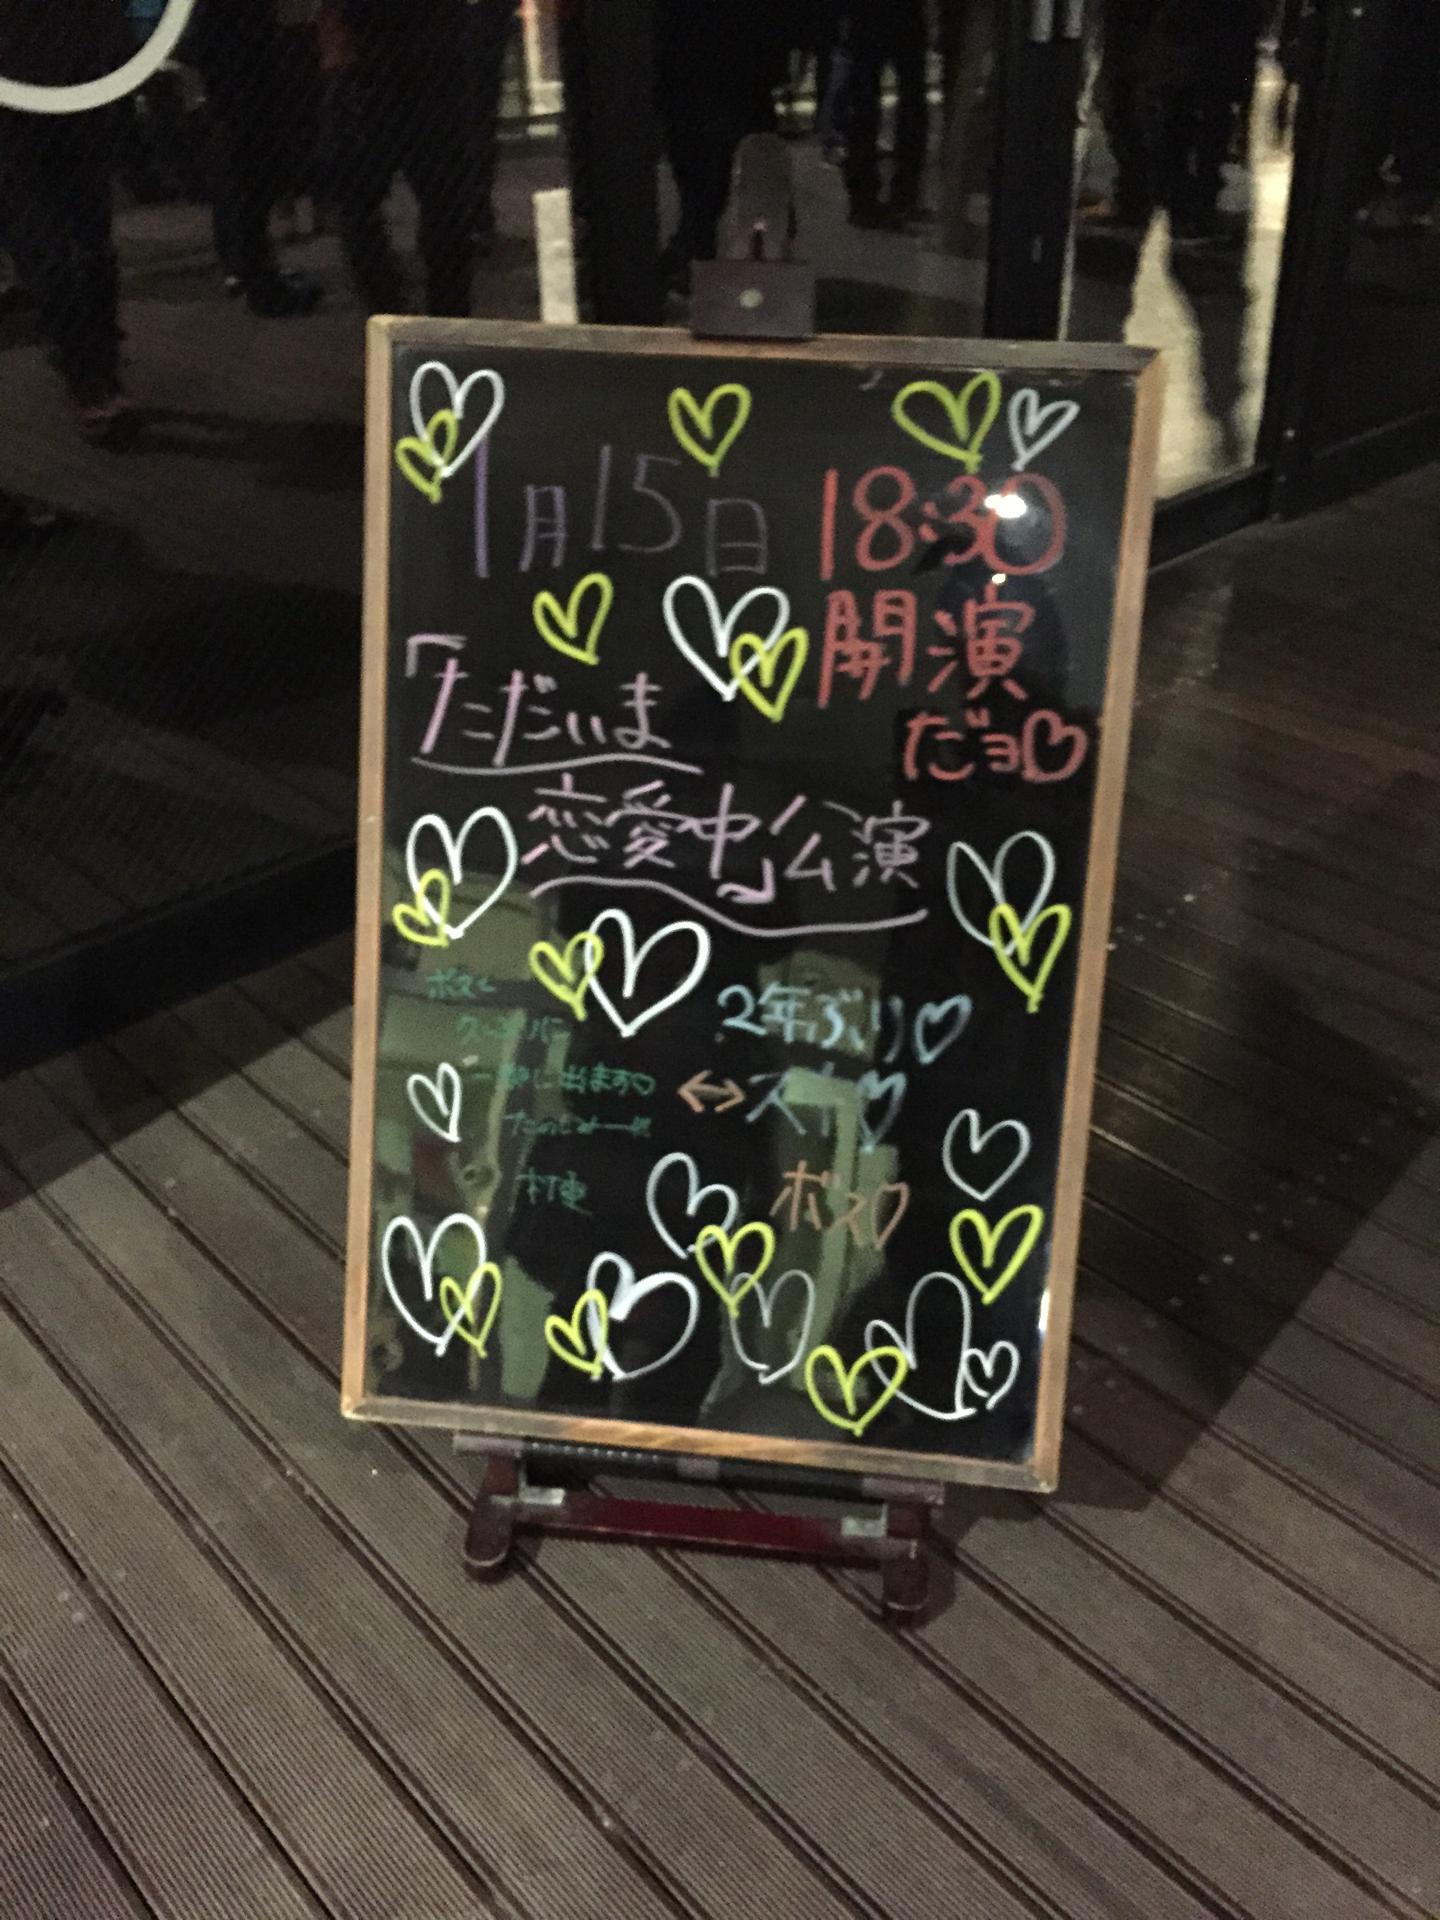 1月15日
18:30
開演
だヨ♡
「ただいま
恋愛中」公演
ボスと
久しぶりに
一緒に出ます♡
たのしみー
2年ぶり♡
↔
ボス♡